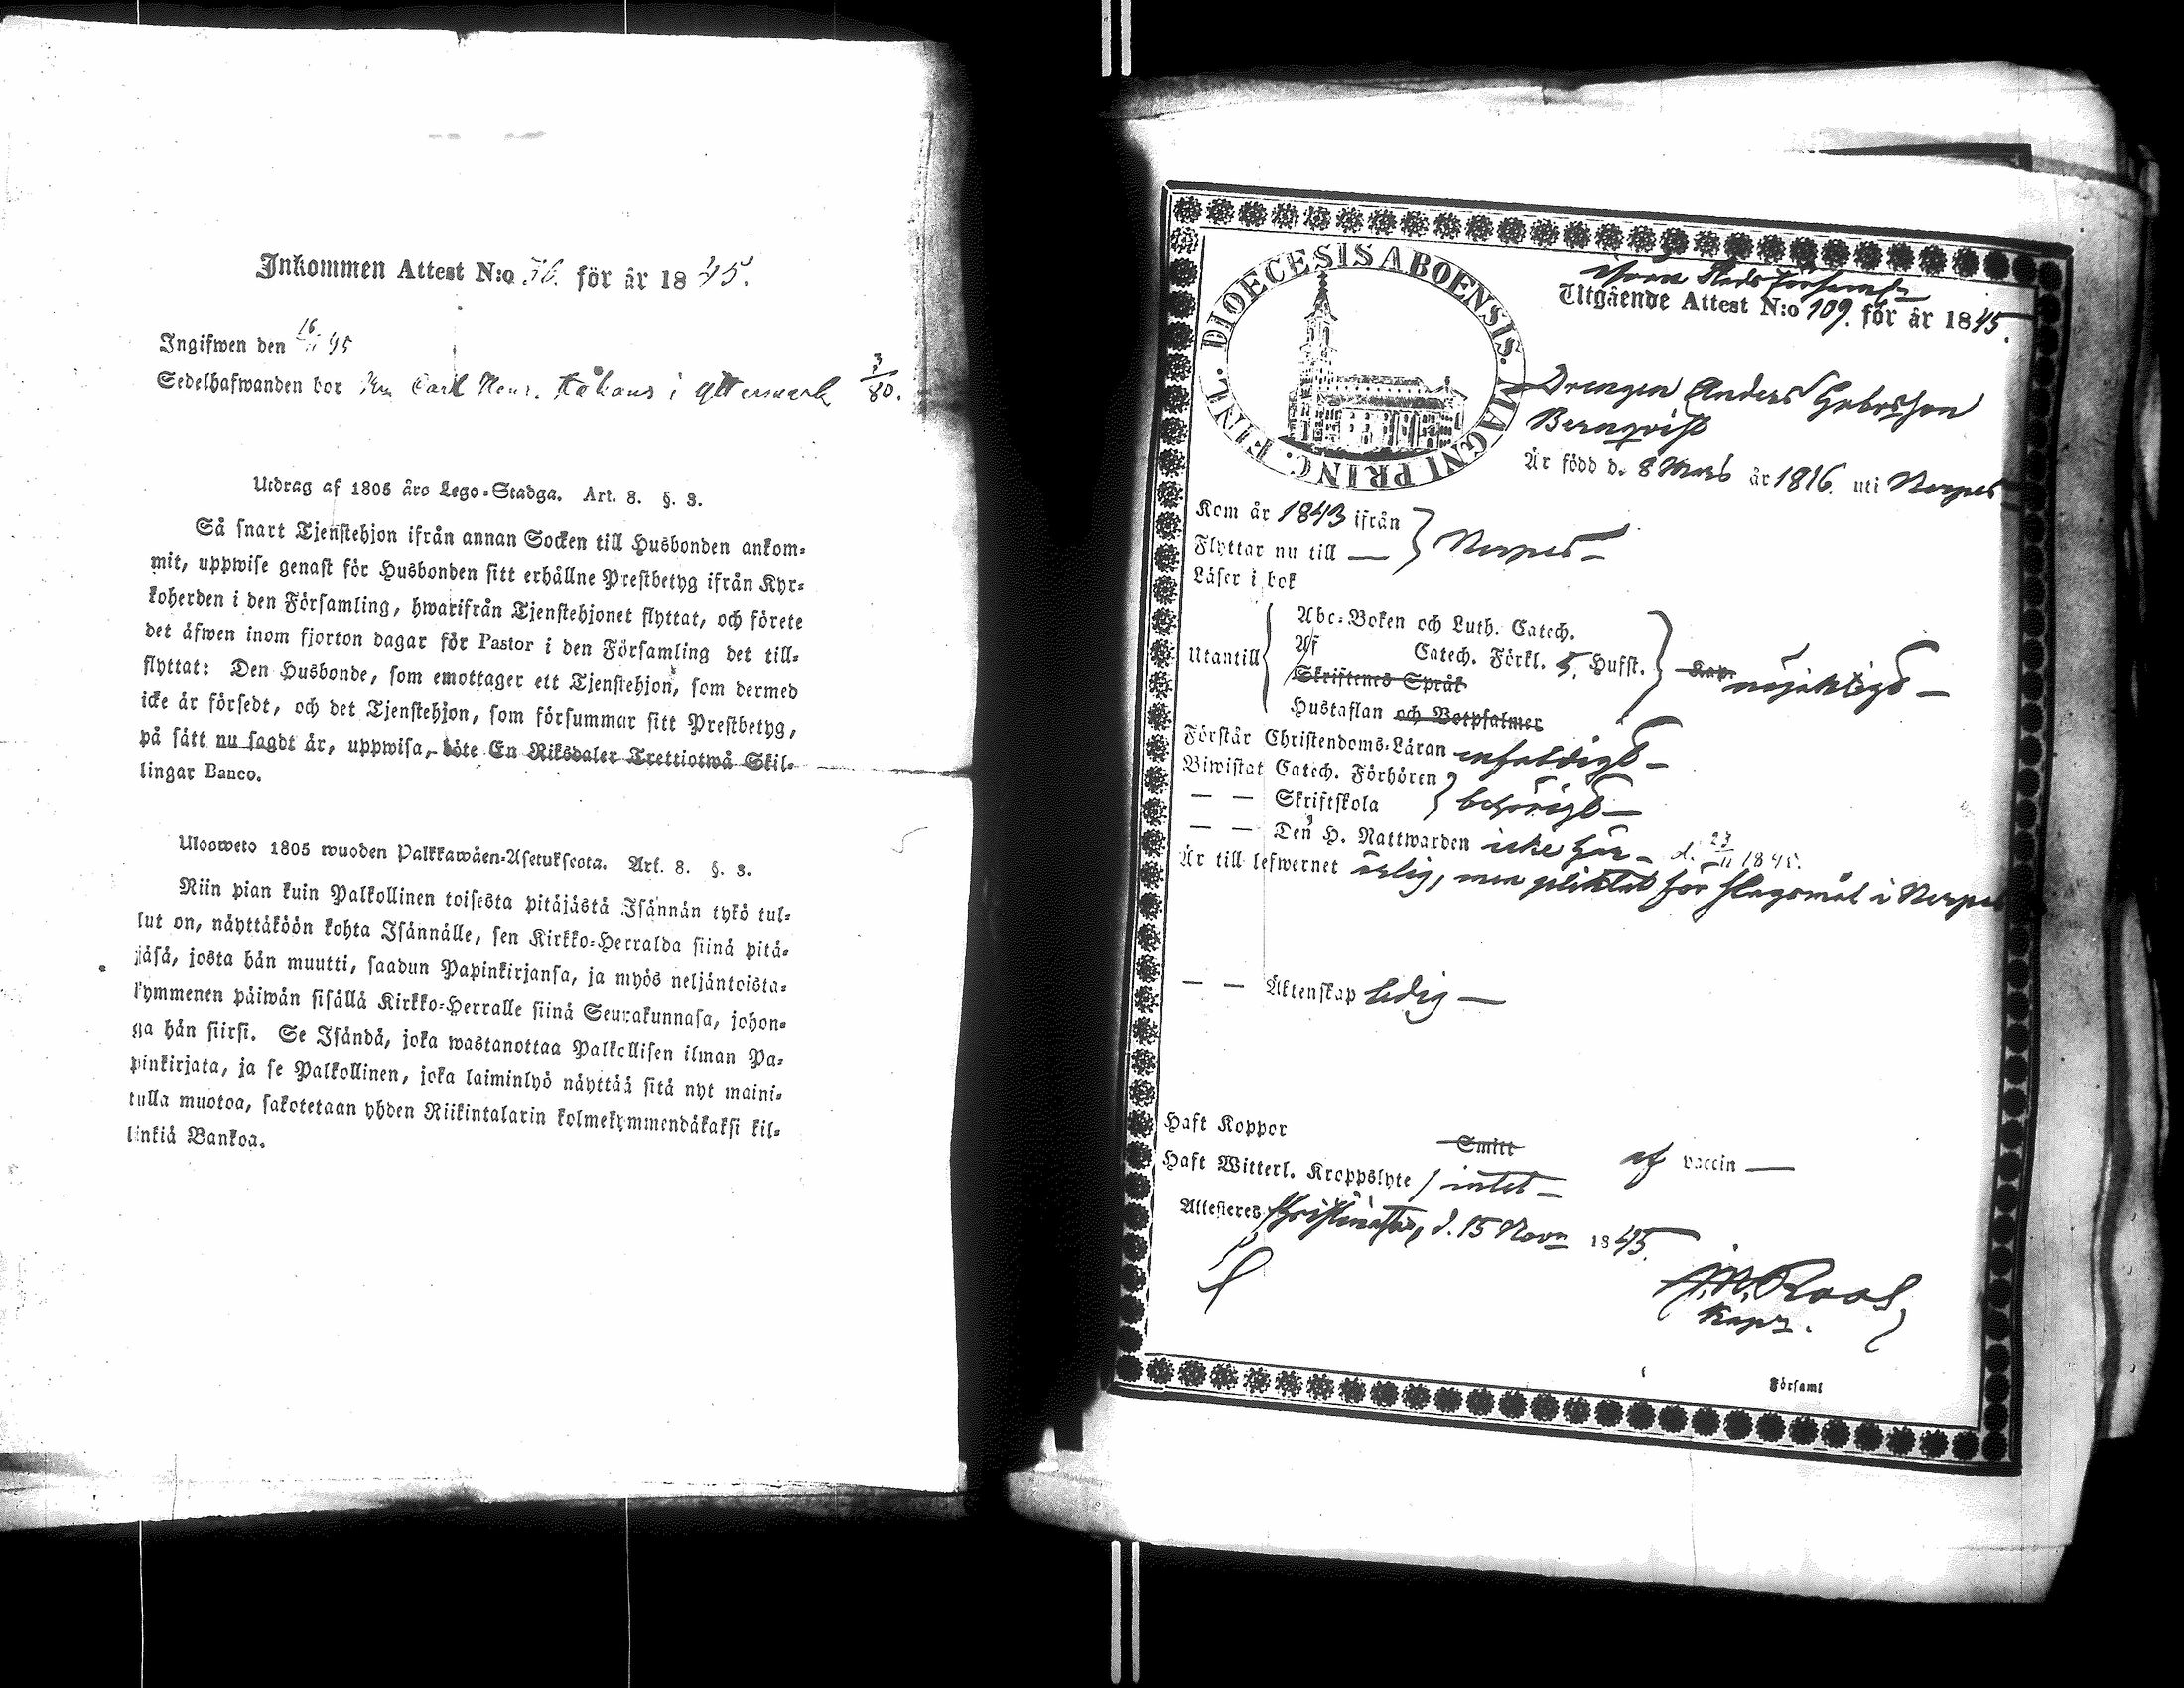 Inkommen Attest N:o 36. för år 1845.
Ingifwen den 16/11 45
Sedelhafwanden bor Carl Henr. i Yttermark 3/80.
Utdrag af 1805 års Lego-Stadga. Art. 8. §. 3.
Så snart Tjenstehjon ifrån annan Socken till Husbonden ankom-
mit, uppwise genast för Husbonden sitt erhållne Prestbetyg ifrån Kyr-
koherden i den Församling, hwarifrån Tjenstehjonet flyttat, och förete
det äfwen inom fjorton dagar för Pastor i den Församling det till-
flyttat: Den Husbonde, som emottager ett Tjenstehjon, som dermed
icke är försedt, och det Tjenstehjon, som försummar sitt Prestbetyg,
på sätt nu sagdt är, uppwisa, böte En Riksdaler Trettiotwå Skil-
lingar Banco.
Ulosweto 1805 wuoden Palkkawäen-Asetuksesta. Art. 8. §. 3.
Niin pian kuin Palkollinen toisesta pitäjästä Isännän tykö tul-
lut on, näyttäköön kohta Isännälle, sen Kirkko-Herralda siinä pitä-
jäsä, josta hän muutti, saadun Papinkirjansa, ja myös neljäntoista-
kymmenen päiwän sisällä Kirkko-Herralle siinä Seurakunnasa, johon-
ga hän siirsi. Se Isändä, joka wastanottaa Palkollisen ilman Pa-
pinkirjata, ja se Palkollinen, joka laiminlyö näyttää sitä nyt maini-
tulla muotoa, sakotetaan yhden Riikintalarin kolmekymmendäkaksi kil-
linkiä Bankoa.
DIOECESIS ABOENSIS. MAGNI PRINC. FINL.
ifrån Stads Församl.
Utgående Attest N:o 109. för år 1845.
Drengen Anders Gabrsson
Bernqvist
Är född d. 8 Mars år 1816. uti Nerpes
Kom år 1843 ifrån
Flyttar nu till — } Nerpes —
Läser i bok
Abc-Boken och Luth. Catech.
Af Catech. Förkl. 5. Hufst.
Utantill Skriftenes Språk nöjaktigt —
Hustaflan och Botpsalmer
Förstår Christendoms-Läran enfaldigt —
Biwistat Catech. Förhören
— — Skriftskola } behörigt —
— — Den H. Nattwarden icke här — d. 23/11 1845.
Är till lefwernet ärlig, men pliktat för slagsmål i Nerpes
— — Äktenskap ledig —
Haft Koppor Smitt af vaccin —
Haft Witterl. Kroppslyte intet —
Attesteres Christinestad, d. 15 Novr 1845.
J. M. Roos
Kapn.
Församl